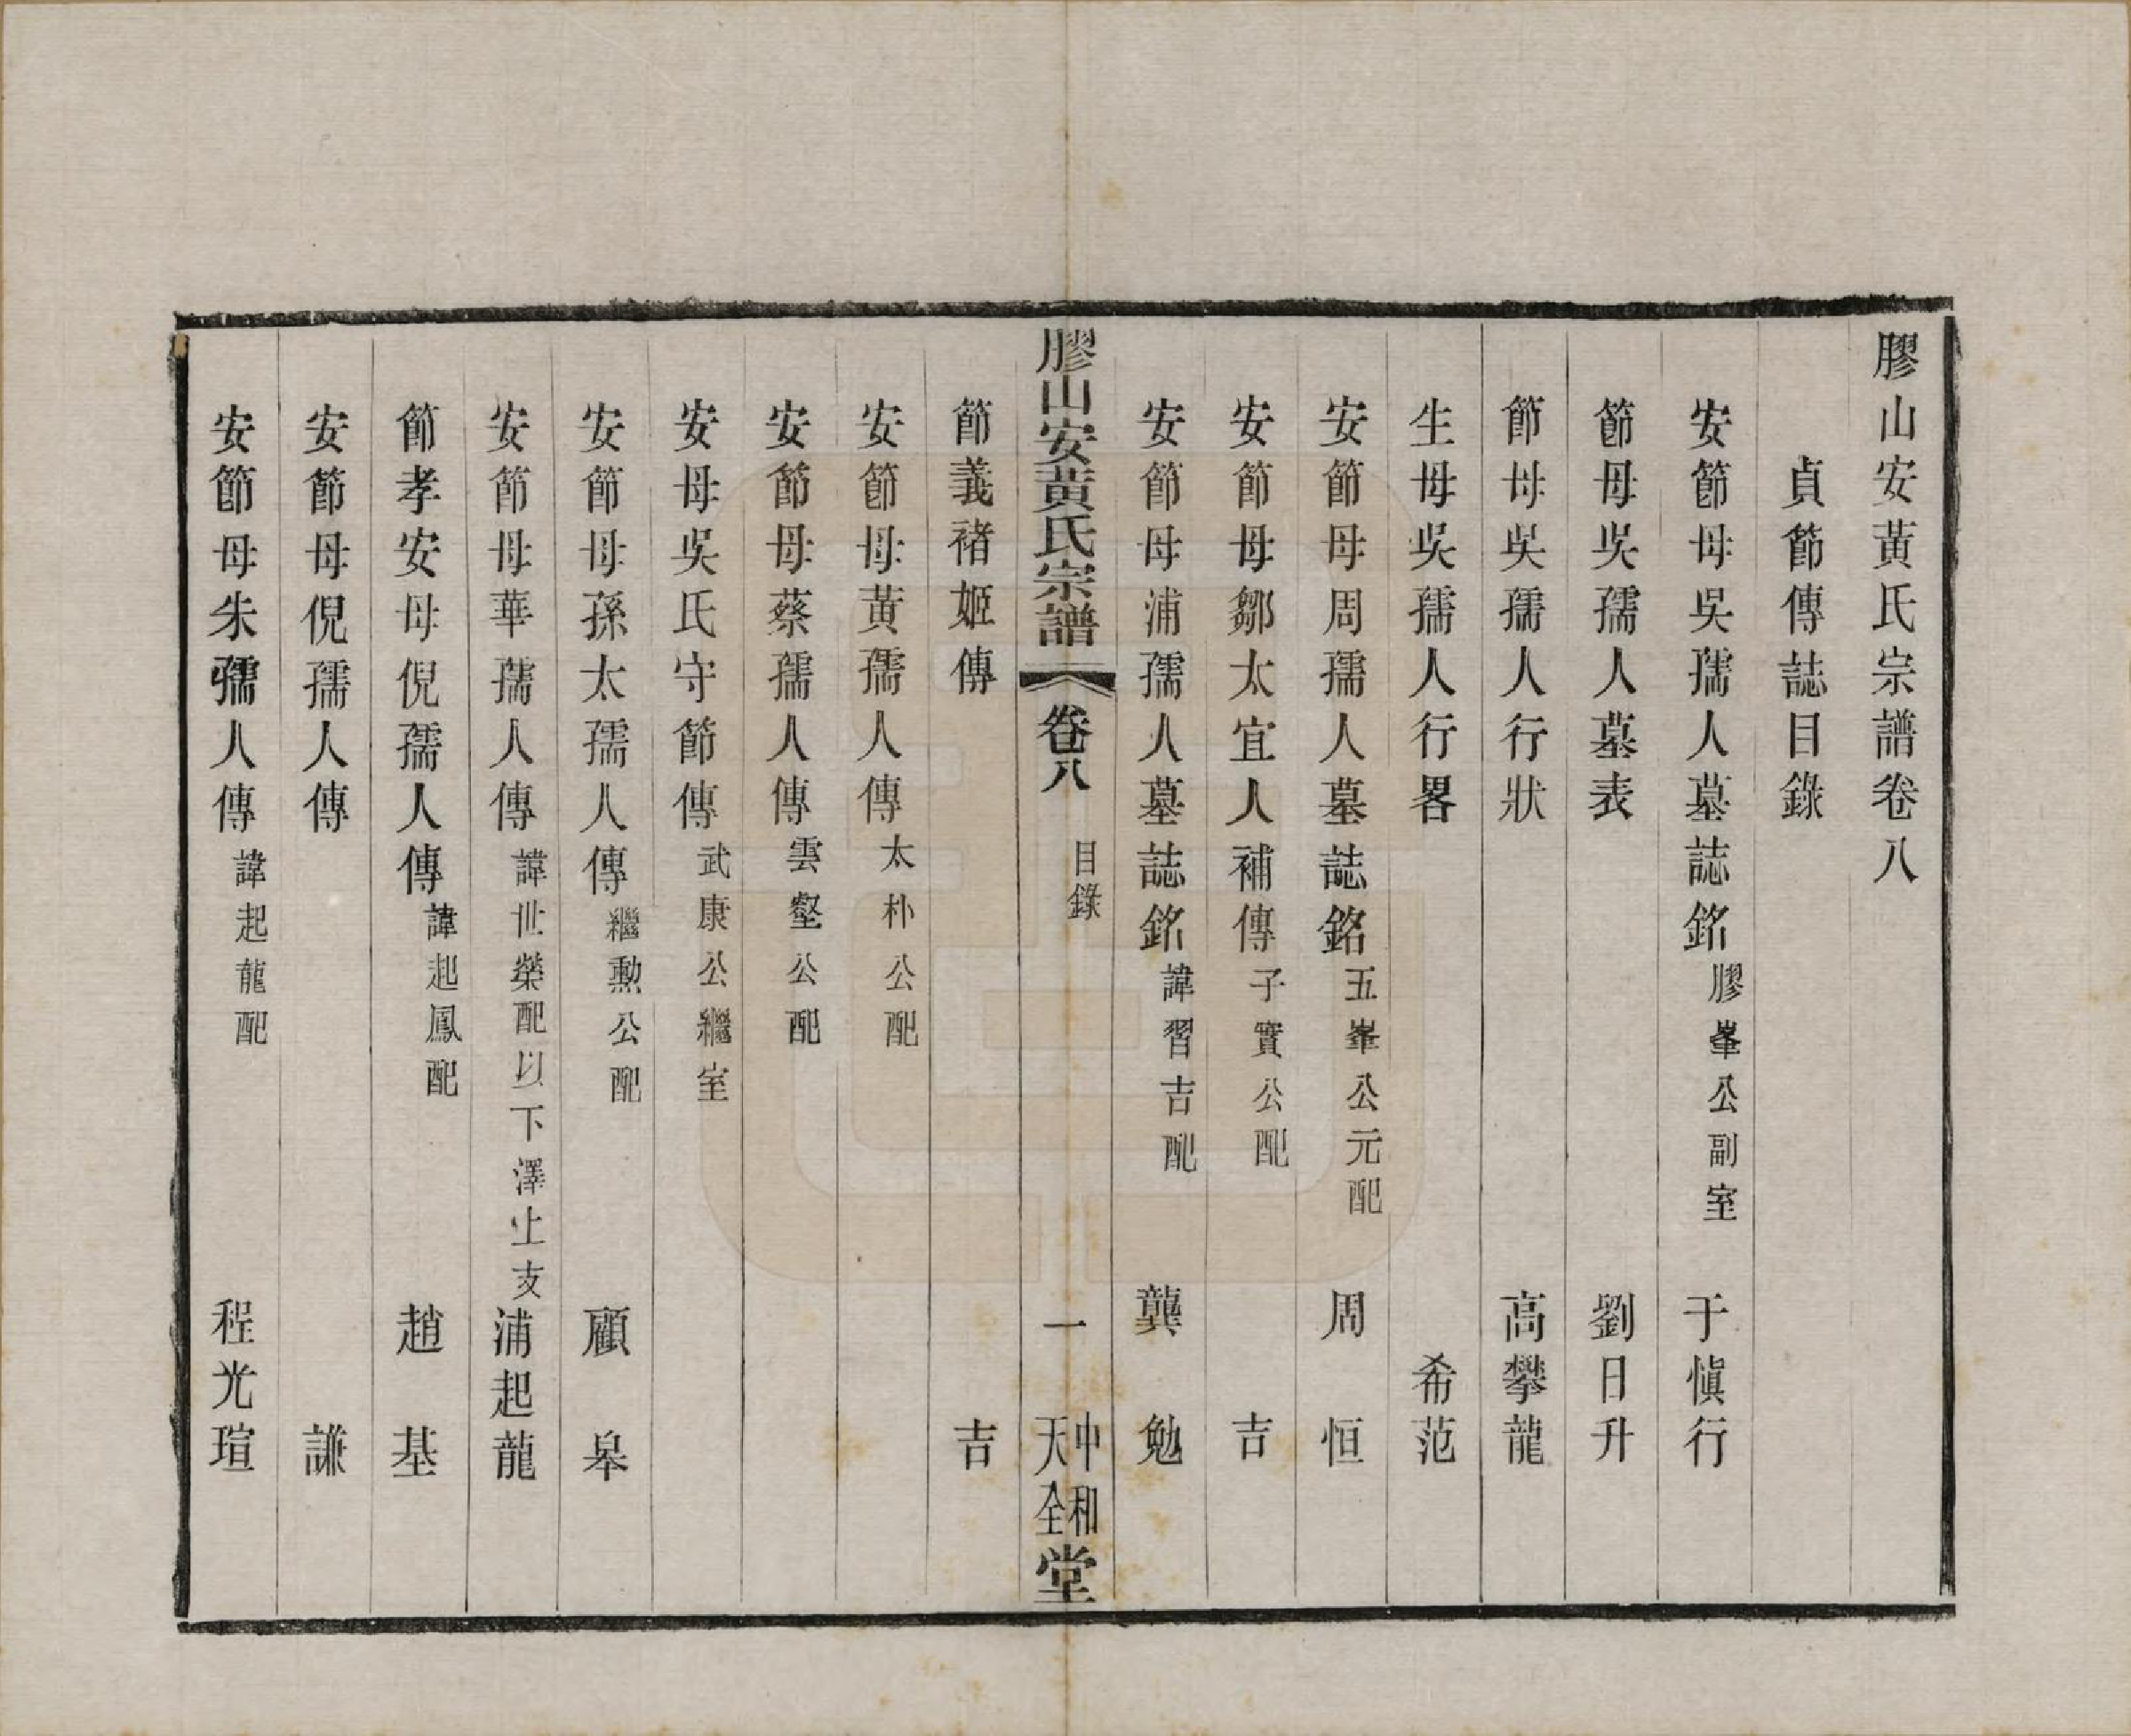 膠山安黃氏宗譜卷八
貞節傳誌目錄
安節母吳孺人墓誌銘 膠峯公副室 于愼行
節母吳孺人墓表 劉日升
節母吳孺人行狀 高攀龍
生母吳孺人行畧 希范
安節母周孺人墓誌銘 五峯公元配 周恒
安節母鄒太宜人補傳 子實公配 吉
安節母浦孺人墓誌銘 諱習吉配 龔勉
膠山安黃氏宗譜 卷八 目錄 一 天全中和堂
節義褚姬傳 吉
安節母黃孺人傳 太朴公配
安節母蔡孺人傳 雲壑公配
安母吳氏守節傳 武康公繼室
安節母孫太孺人傳 繼勳公配 顧皋
安節母華孺人傳 諱世榮配以下澤上支 浦起龍
節孝安母倪孺人傳 諱起鳳配 趙基
安節母倪孺人傳 謙
安節母朱孺人傳 諱起龍配 程光瑄